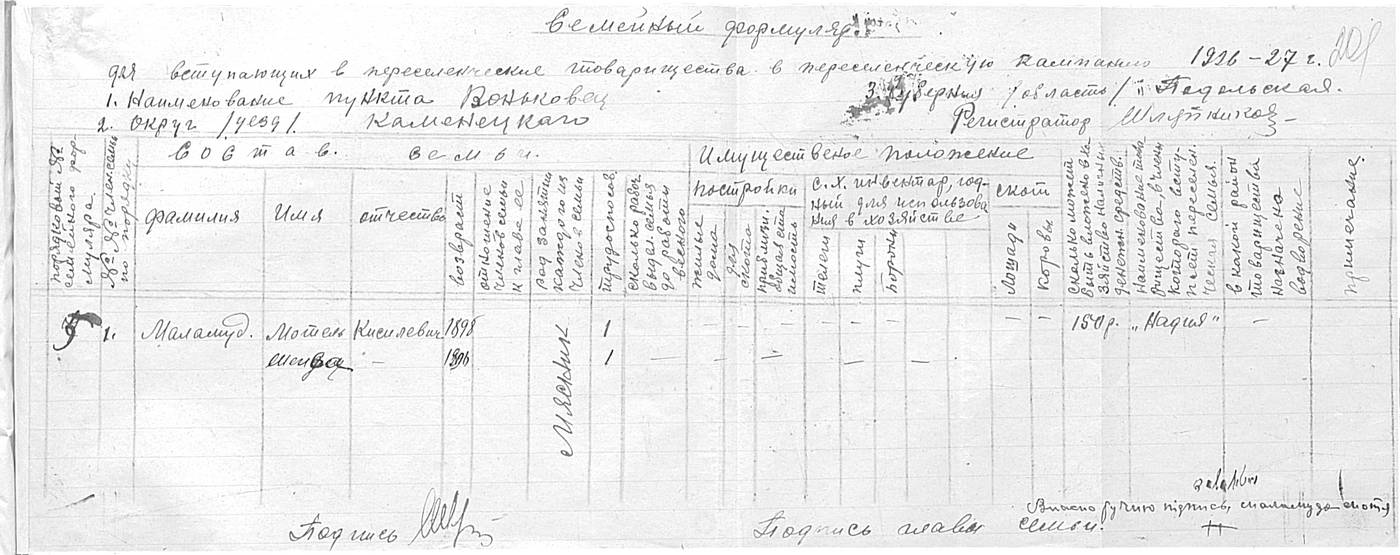 Семейный формуляр
для вступающих в переселенческие товарищества в переселенческую кампанию 1926-27 г. 201
1. Наименование пункта Воньковец 3. Губерния /область/ Подольская.
2. Округ /уезд/. Каменецкаго Регистратор Шляпников
порядковый № семейного формуляра
№ № членсемьи по порядку
Состав семьи.
фамилия
Имя
отчество
возраст
отношение членов семьи к главе ее
род занятий каждого из членов семьи
трудоспособ.
сколько рабоч. выдел. семья до работы весною
Имущественое положение
постройки
жилые дома
для скота
приблизи. общая стоимость
с. х. инвентар, годный для использования в хозяйстве
телеги
плуги
бороны
скот
Лошади
Коровы
Сколько может быть вложено в хазяйство наличных денежн. средств.
Наименование товарищества, в члены которого вступает переселенческая семья.
в какой район товарищества назначено водворение
примечание.
5 1. Маламуд. Мотель Кисилевич 1898 Мясник 1 — — — — — — — — 150 р. „Надия" —
— 1 — — — — — —
Подпись Подпись главы семьи. підпись, маламуда мотя